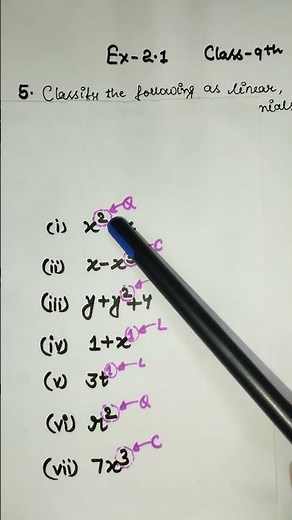 Ex-2.1 Class-9th
5. Classify the following as linear,
nials
(i) x² ← Q
(ii) x-x ← C
(iii) y+y²+4 ←
(iv) 1+x¹ ← L
(v) 3t¹ ← L
(vi) r² ← Q
(vii) 7x³ ← C